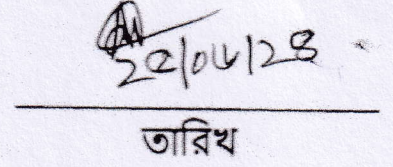 ২৫/০৬/২৪
তারিখ